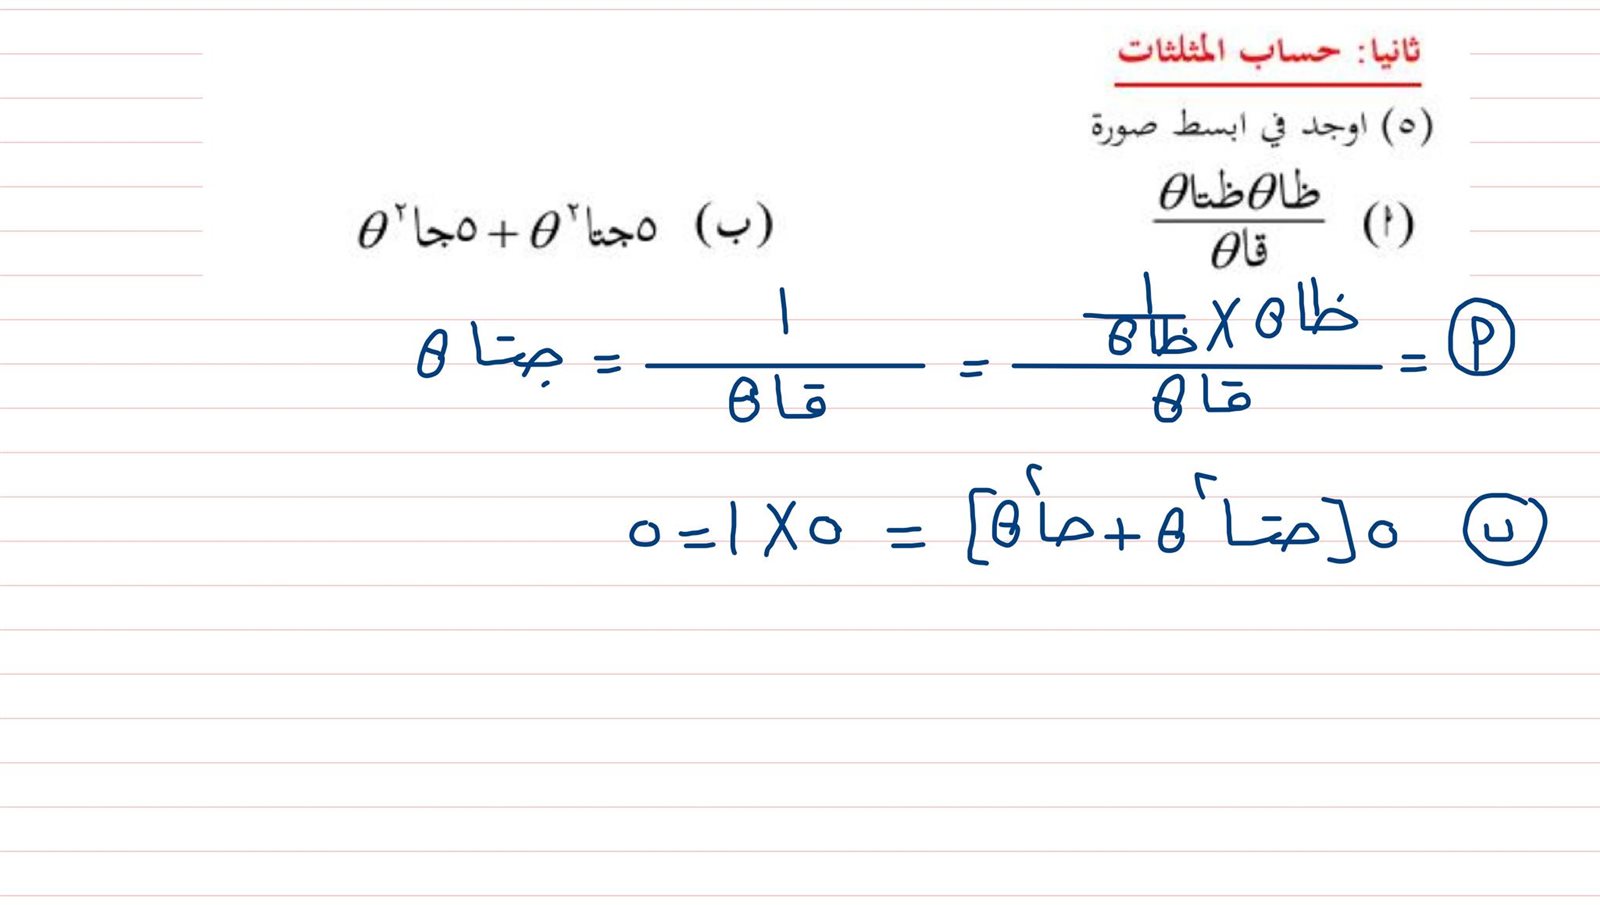 ثانيا: حساب المثلثات
(٥) اوجد في ابسط صورة
(أ) ظاθظتاθ / قاθ (ب) ٥جتا²θ + ٥جا²θ
أ = (ظاθ × ١/ظاθ) / قاθ = ١ / قاθ = جتاθ
ب ٥[جتا²θ + جا²θ] = ٥ × ١ = ٥